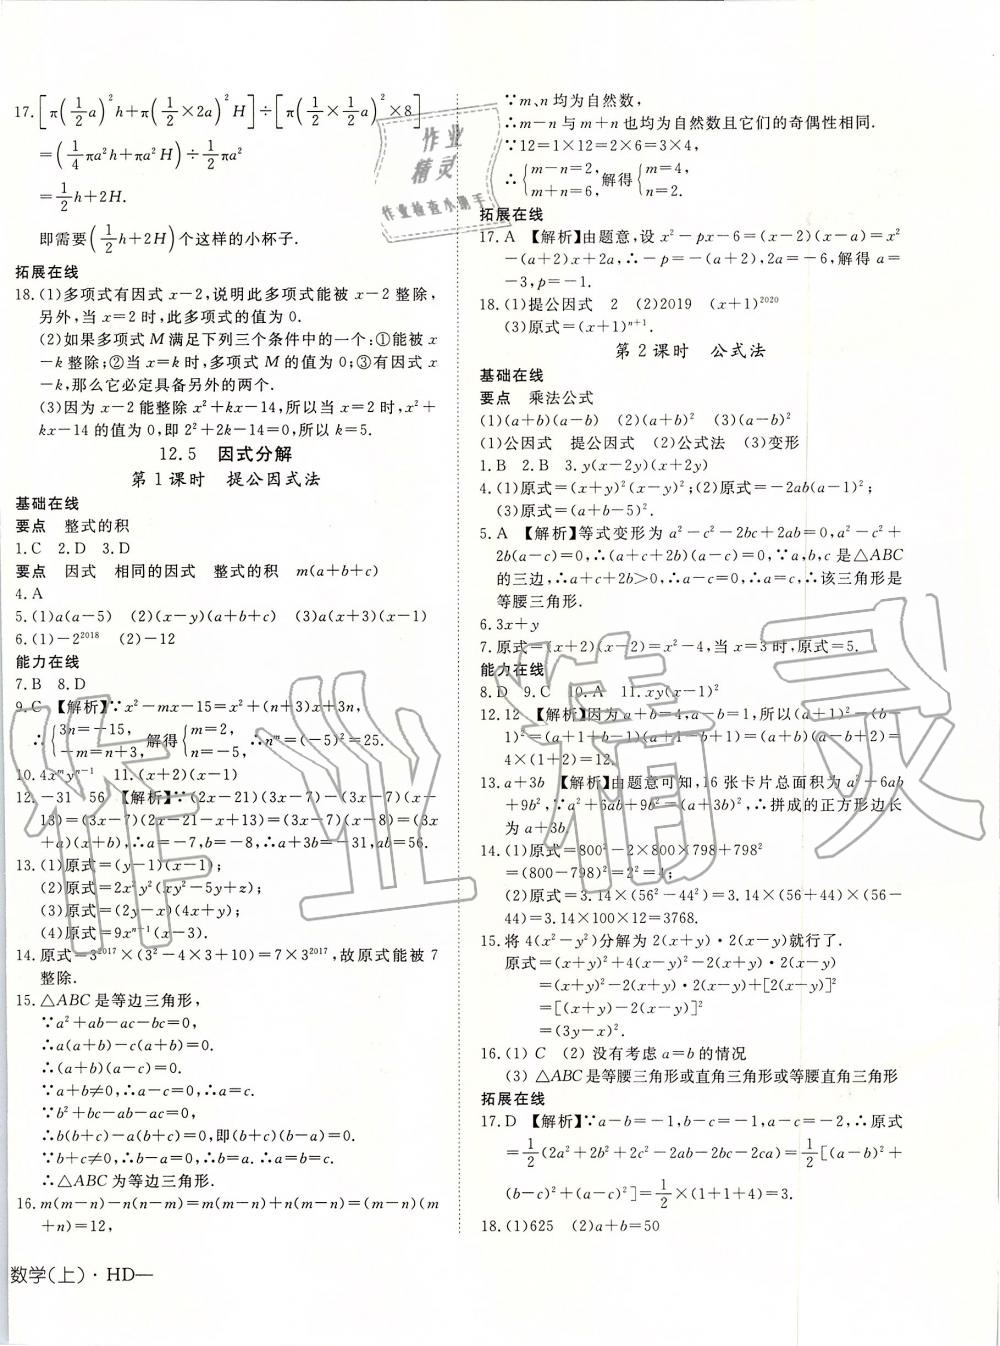 17.[π(1/2 a)²h+π(1/2×2a)²H]÷[π(1/2×1/2 a)²×8]
=(1/4 πa²h+πa²H)÷1/2 πa²
=1/2 h+2H.
即需要(1/2 h+2H)个这样的小杯子.
拓展在线
18.(1)多项式有因式 x-2,说明此多项式能被 x-2 整除,
另外,当 x=2 时,此多项式的值为 0.
(2)如果多项式 M 满足下列三个条件中的一个:①能被 x
-k 整除;②当 x=k 时,多项式 M 的值为 0;③有因式 x
-k,那么它必定具备另外的两个.
(3)因为 x-2 能整除 x²+kx-14,所以当 x=2 时,x²+
kx-14 的值为 0,即 2²+2k-14=0,所以 k=5.
12.5 因式分解
第 1 课时 提公因式法
基础在线
要点 整式的积
1.C 2.D 3.D
要点 因式 相同的因式 整式的积 m(a+b+c)
4.A
5.(1)a(a-5) (2)(x-y)(a+b+c) (3)a(x+3)(x-1)
6.(1)-2²⁰¹⁸ (2)-12
能力在线
7.B 8.D
9.C 【解析】∵x²-mx-15=x²+(n+3)x+3n,
∴{3n=-15, -m=n+3, 解得{m=2, n=-5, ∴nᵐ=(-5)²=25.
10.4xᵐyⁿ⁻¹ 11.(x+2)(x-1)
12.-31 56 【解析】∵(2x-21)(3x-7)-(3x-7)(x-
13)=(3x-7)(2x-21-x+13)=(3x-7)(x-8)=(3x
+a)(x+b),∴a=-7,b=-8,∴a+3b=-31,ab=56.
13.(1)原式=(y-1)(x-1);
(2)原式=2x²y²(xy²-5y+z);
(3)原式=(2y-x)(4x+y);
(4)原式=9xⁿ⁻¹(x-3).
14.原式=3²⁰¹⁷×(3²-4×3+10)=7×3²⁰¹⁷,故原式能被 7
整除.
15.△ABC 是等边三角形,
∵a²+ab-ac-bc=0,
∴a(a+b)-c(a+b)=0.
∴(a+b)(a-c)=0.
∵a+b≠0,∴a-c=0,∴a=c.
∵b²+bc-ab-ac=0,
∴b(b+c)-a(b+c)=0,即(b+c)(b-a)=0.
∵b+c≠0,∴b-a=0,∴b=a.∴a=b=c.
∴△ABC 为等边三角形.
16.m(m-n)-n(n-m)=m(m-n)+n(m-n)=(m-n)(m
+n)=12,
数学(上)·HD—
∵m、n 均为自然数,
∴m-n 与 m+n 也均为自然数且它们的奇偶性相同.
∵12=1×12=2×6=3×4,
∴{m-n=2, m+n=6, 解得{m=4, n=2.
拓展在线
17.A 【解析】由题意,设 x²-px-6=(x-2)(x-a)=x²
-(a+2)x+2a,∴-p=-(a+2),2a=-6,解得 a=
-3,p=-1.
18.(1)提公因式 2 (2)2019 (x+1)²⁰²⁰
(3)原式=(x+1)ⁿ⁺¹.
第 2 课时 公式法
基础在线
要点 乘法公式
(1)(a+b)(a-b) (2)(a+b)² (3)(a-b)²
(1)公因式 提公因式 (2)公式法 (3)变形
1.B 2.D 3.y(x-2y)(x+2y)
4.(1)原式=(x+y)²(x-y)²; (2)原式=-2ab(a-1)²;
(3)原式=(a+b-5)².
5.A 【解析】等式变形为 a²-c²-2bc+2ab=0,a²-c²+
2b(a-c)=0,∴(a+c+2b)(a-c)=0,∵a,b,c 是△ABC
的三边,∴a+c+2b>0,∴a-c=0,∴a=c,∴该三角形是
等腰三角形.
6.3x+y
7.原式=(x+2)(x-2)=x²-4,当 x=3 时,原式=5.
能力在线
8.D 9.C 10.A 11.xy(x-1)²
12.12 【解析】因为 a+b=4,a-b=1,所以(a+1)²-(b-
1)²=(a+1+b-1)(a+1-b+1)=(a+b)(a-b+2)=
4×(1+2)=12.
13.a+3b 【解析】由题意可知,16 张卡片总面积为 a²+6ab
+9b²,∵a²+6ab+9b²=(a+3b)²,∴拼成的正方形边长
为 a+3b.
14.(1)原式=800²-2×800×798+798²
=(800-798)²=2²=4;
(2)原式=3.14×(56²-44²)=3.14×(56+44)×(56-
44)=3.14×100×12=3768.
15.将 4(x²-y²)分解为 2(x+y)·2(x-y)就行了.
原式=(x+y)²+4(x-y)²-2(x+y)·2(x-y)
=(x+y)²-2(x+y)·2(x-y)+[2(x-y)]²
=[(x+y)-2(x-y)]²
=(3y-x)².
16.(1) C (2) 没有考虑 a=b 的情况
(3) △ABC 是等腰三角形或直角三角形或等腰直角三角形
拓展在线
17.D 【解析】∵a-b=-1,b-c=-1,a-c=-2,∴原式
=1/2(2a²+2b²+2c²-2ab-2bc-2ca)=1/2[(a-b)²+
(b-c)²+(a-c)²]=1/2×(1+1+4)=3.
18.(1)625 (2)a+b=50
作业
精灵
作业检查小助手
作业精灵